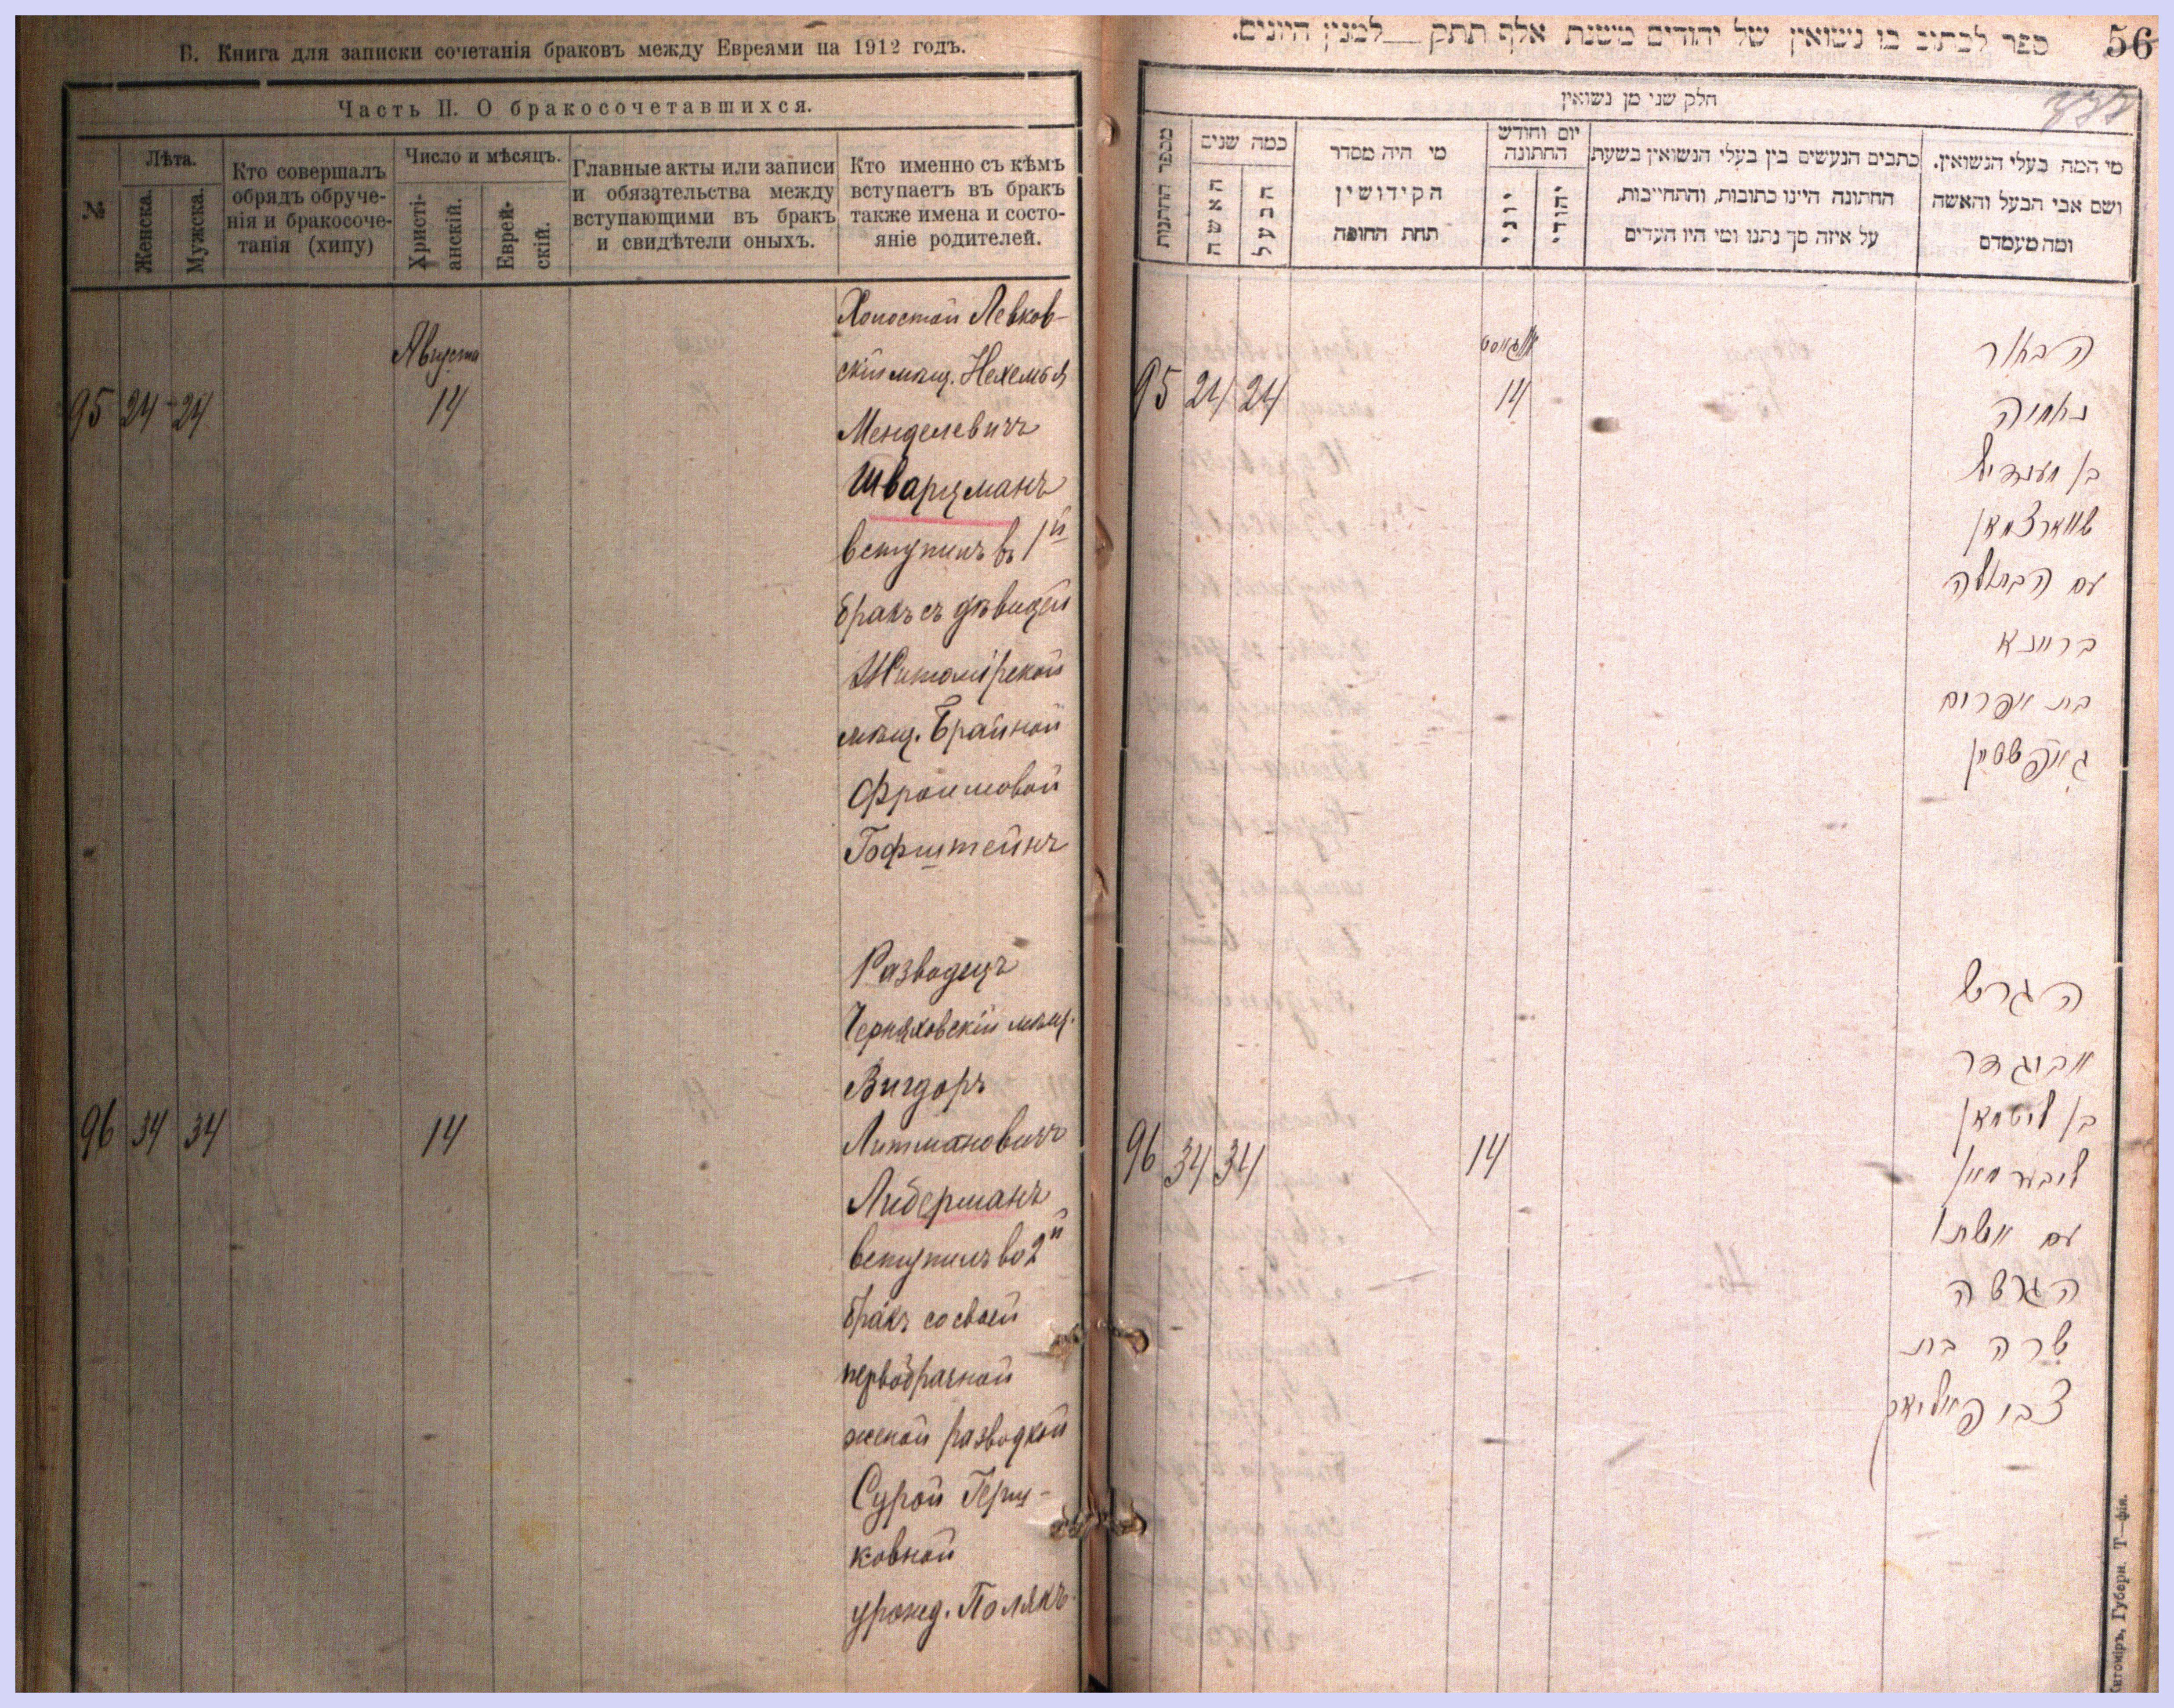 Б. Книга для записки сочетанія браковъ между Евреями на 1912 годъ.
Часть II. О бракосочетавшихся.
№
Лѣта.
Женска.
Мужска.
Кто совершалъ
обрядъ обруче-
нія и бракосоче-
танія (хипу)
Число и мѣсяцъ.
Христі-
анскій.
Еврей-
скій.
Главные акты или записи
и обязательства между
вступающими въ бракъ
и свидѣтели оныхъ.
Кто именно съ кѣмъ
вступаетъ въ бракъ
также имена и состо-
яніе родителей.
Августа
95 24 24 14
Холостой Левков-
скій мѣщ. Нехемья
Менделевичъ
Шварцманъ
вступилъ въ 1й
бракъ съ дѣвицей
Житомірской
мѣщ. Брайной
Фроимовой
Гофштейнъ
96 34 34 14
Разводецъ
Черняховскій мѣщ.
Вигдоръ
Литмановичъ
Либерманъ
вступилъ во 2й
бракъ со своей
первобрачной
женой разводкой
Сурой Герш-
ковной
урожд. Полякъ
ספר לכתוב בו נשואין של יהודים משנת אלף תתק למנין היונים.
56
חלק שני מן נשואין
מספר החתנות
כמה שנים
האשה
הבעל
מי היה מסדר
הקידושין
תחת החופה
יום וחודש
החתונה
יוני
יהודי
כתבים הנעשים בין בעלי הנשואין בשעת
החתונה היינו כתובות, והתחייבות,
על איזה סך נתנו ומי היו העדים
מי המה בעלי הנשואין.
ושם אבי הבעל והאשה
ומה מעמדם
אויגוסט
95 24 24 14
הבחור
נחמיה
בן מענדיל
שווארצמאן
עם הבתולה
בריינא
בת אפרים
גאפשטיין
96 34 34 14
הגרוש
אביגדר
בן ליטמאן
ליבערמאן
עם אשתו
הגרושה
שרה בת
צבי פאליאק
Житоміръ, Губерн. Т—фія.